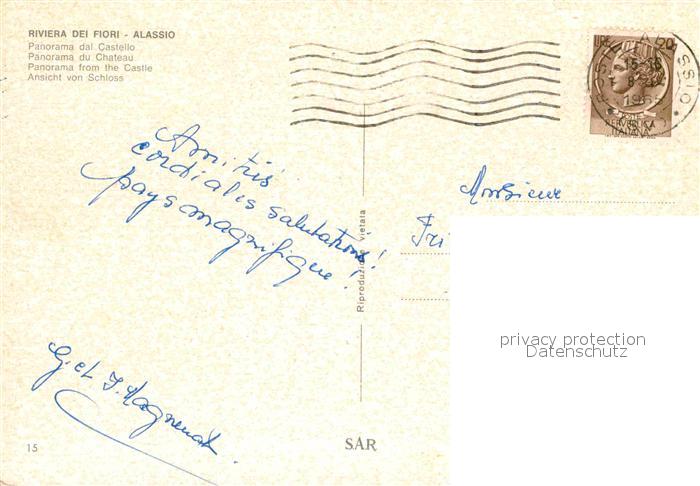 RIVIERA DEI FIORI - ALASSIO
Panorama dal Castello
Panorama du Chateau
Panorama from the Castle
Ansicht von Schloss
cordialis salutations!
pays magnifique!
G. et J. Magnenat.
Monsieur
Fri
Riproduzione vietata
privacy protection
Datenschutz
15
SAR
LIRE 20
ALASSIO
1966
REPUBBLICA
ITALIANA